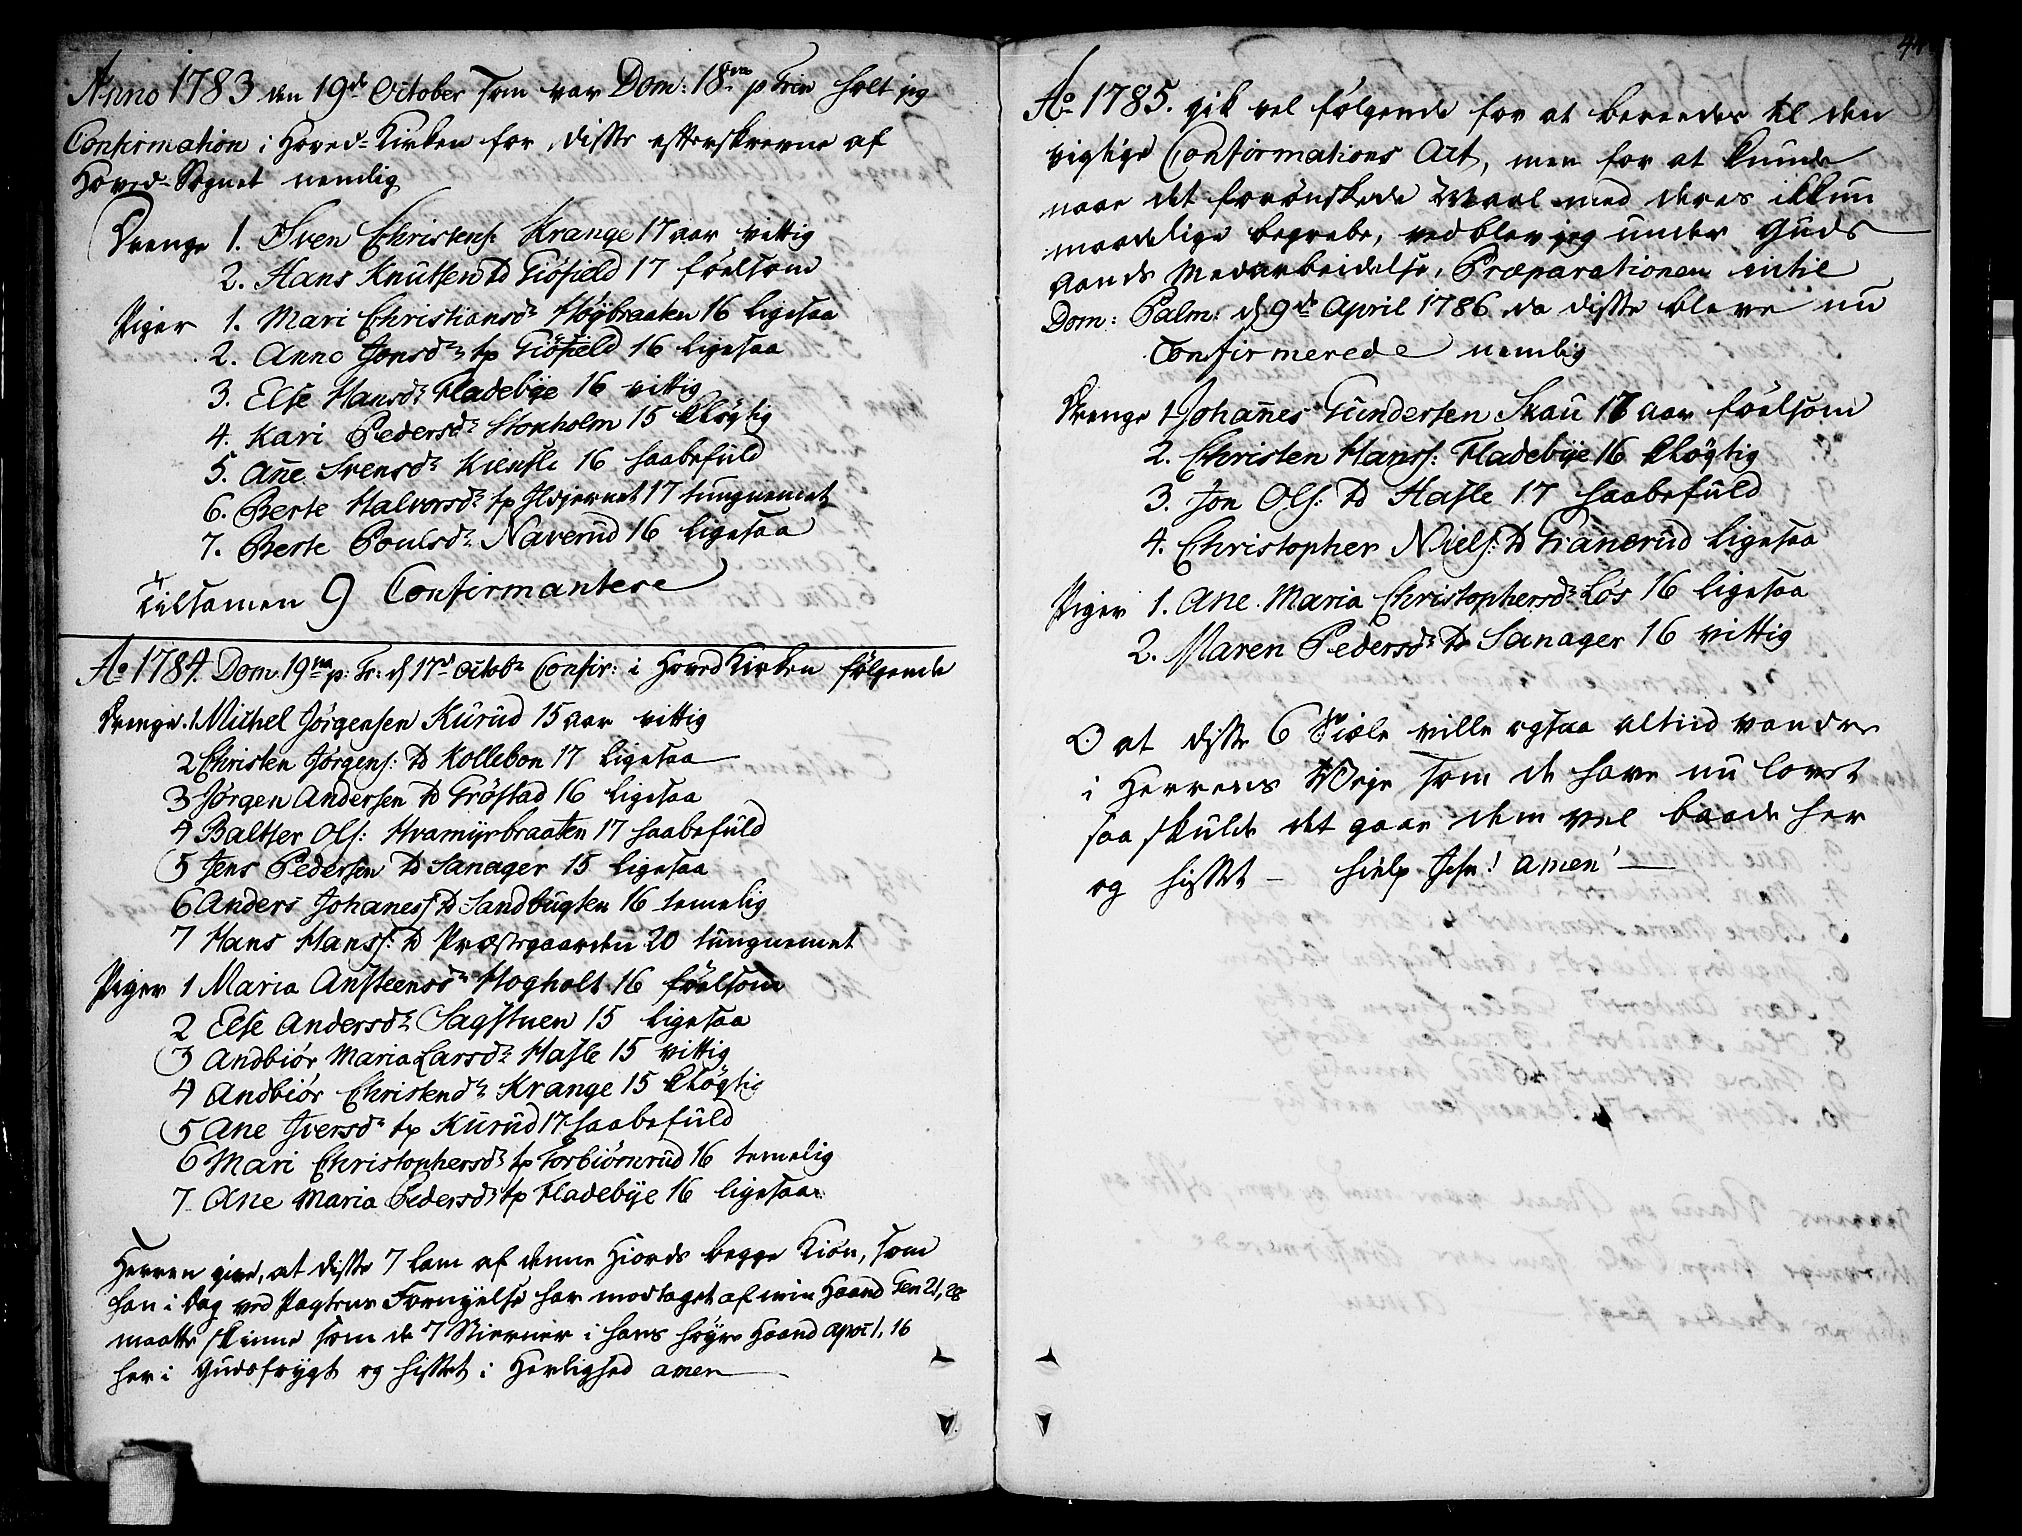 Anno 1783 den 19de October som var Dom: 18va p Trin holt jeg
Confirmation i Hoved-Kirken for disse efterskrevne af
Hoved-Sognet nemlig
Drenge 1. Sven Christens: Krange 17 aar vittig
2. Hans Knutsen Giöfield 17 föelsom
Piger 1. Mari Christiansdr Höybraaten 16 ligesaa
2. Anne Jonsdr Giöfield 16 ligesaa
3. Else Hansdr Fladebÿe 16 vittig
4. Kari Pedersdr Stokholm 15 kløgtig
5. Añe Svensdr 16 haabefuld
6. Berte Halvorsdr Ildjernet 17 tungnemet
7. Berte Poulsdr Naverud 16 ligesaa
Tilsamen 9 Confirmantere
Ao 1784. Dom. 19na p: Tr: d 17de Octobr Confir: i Hoved Kirken følgende
Drenge. 1 Michel Jörgensen Kurud 15 aar vittig
2 Christen Jörgens: Kollebon 17 ligesaa
3 Jörgen Andersen Gröstad 16 ligesaa
4 Baltser Ols: Hvamÿrbraaten 17 haabefuld
5 Jens Pedersen Sanager 15 ligesaa
6 Anders Johaness Sandbugten 16 temelig
7 Hans Hanss: Præstegaarden 20 tungnemet
Piger 1 Maria Ansteensdr Hogholt 16 föelsom
2 Else Andersdr Sagstuen 15 ligesaa
3 Andbiör Maria Larsdr Hasle 15 vittig
4 Andbiör Christendr Krange 15 kløgtig
5 Ane Iversdr Kurud 17 haabefuld
6 Mari Christophersdr Torbiörnrud 16 temelig
7 Ane Maria Pedersdr Fladebÿe 16 ligesaa
Herren give, at disse 7 lam af denne Hiords begge Kiön, som
han i dag ved Pagtens Fornyelse har modtaget af min Haand Gen 21, 28
maatte skinne som de 7 Stierner i hans høyre Haand apoc 1, 16
her i Gudsfrygt og hisset i Herlighed amen
Ao 1785. gik vel følgende for at bereedes til den
vigtige Confirmations Act, men for at kunde
naae det forønskede Maal med deres ikkun
maadelige begrebe, vedblev jeg under Guds
Aands Medarbeidelse, Præparationen intil
Dom: Palm: d 9de April 1786 da disse bleve nu
Confirmerede nemlig
Drenge 1 Johañes Gundersen Skau 17 aar föelsom
2. Christen Hanss: Fladebÿe 16 kløgtig
3. Jon Ols: Hasle 17 haabefuld
4. Christopher Niels: Granerud ligesaa
Piger 1. Ane Maria Christophersdr Lös 16 ligesaa
2. Maren Pedersdr Sanager 16 vittig
O at disse 6 Siæle ville ogsaa altiid vandre
i Herrens Veje som de have nu lovet
saa skulde det gaae dem vel baade her
og hisset - hielp Jesu! amen!